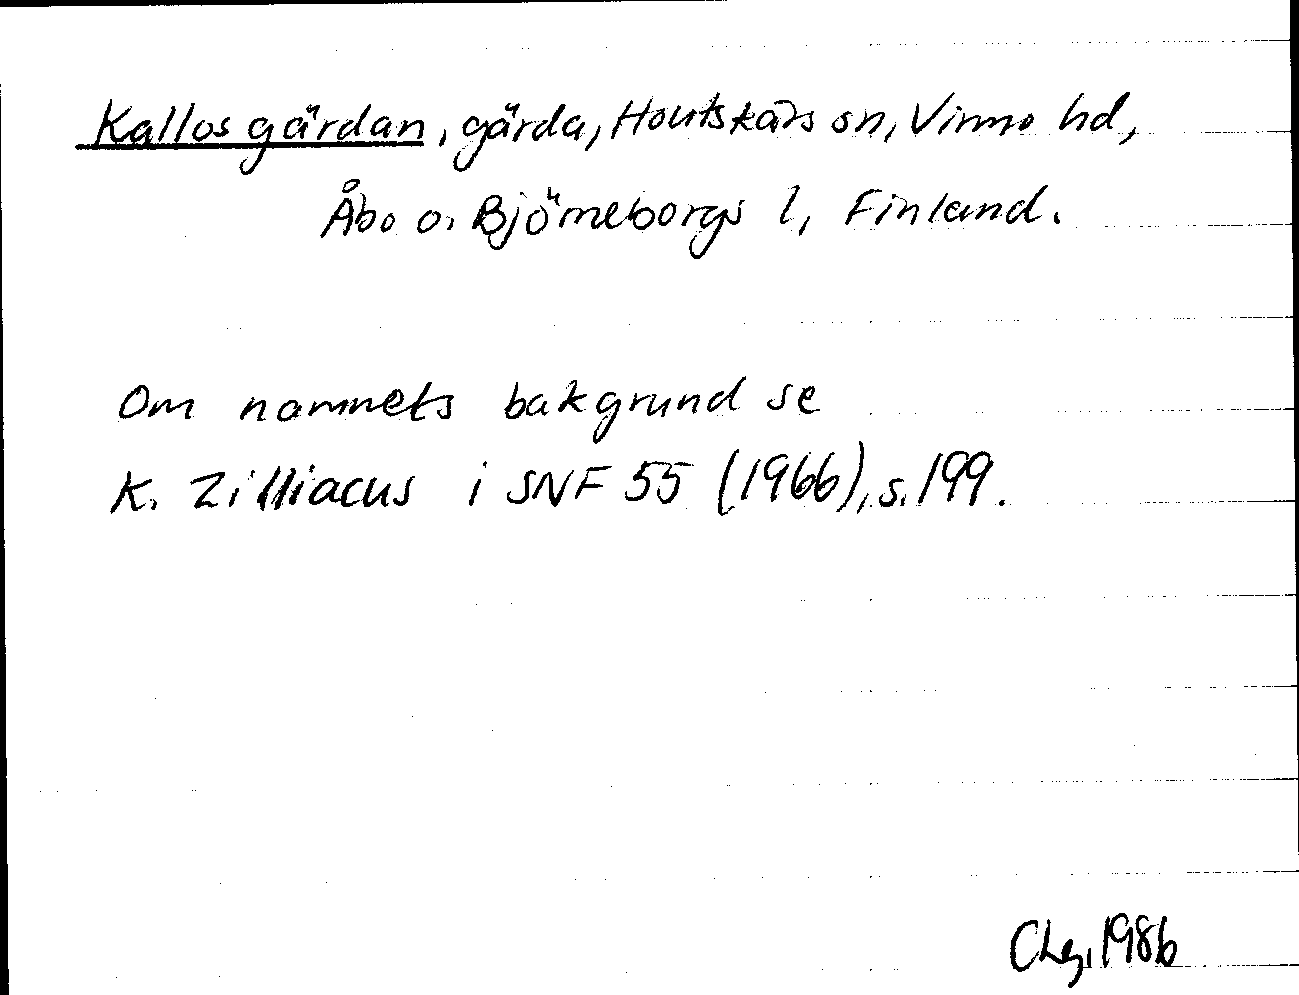 Kallosgärdan, gärda, Houtskärs sn, Virmo hd,
Åbo o. Björneborgs l, Finland.
Om namnets bakgrund se
K. Zilliacus i SNF 55 (1966), s. 199.
1986